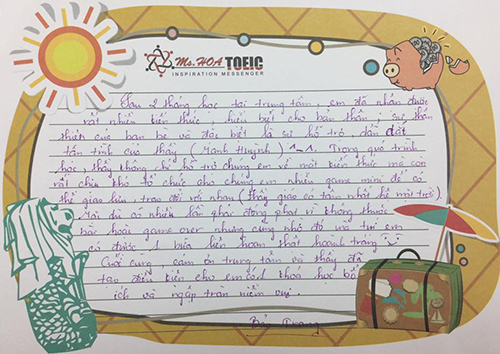 Ms.HOA TOEIC
INSPIRATION MESSENGER
Sau 2 tháng học tại trung tâm, em đã nhận được
rất nhiều kiến thức, hiểu biết cho bản thân, sự thân
thiện của bạn bè và đặc biệt là sự hỗ trợ, dẫn dắt
tận tình của thầy (Mạnh Huỳnh) ^_^. Trong quá trình
học, thầy không chỉ hỗ trợ chúng em về mặt kiến thức mà còn
rất chịu khó tổ chức cho chúng em nhiều game mini để có
thể giao lưu, trao đổi với nhau (thầy giáo có tâm nhất hệ mặt trời)
Mặc dù có nhiều lần phải đóng phạt vì không thuộc
bài hoặc game over nhưng cũng nhờ đó mà tụi em
có được 1 bữa liên hoan thật hoành tráng
Cuối cùng, cảm ơn trung tâm và thầy đã
tạo điều kiện cho em có 1 khoá học bổ
ích và ngập tràn niềm vui.
Bảo Trang